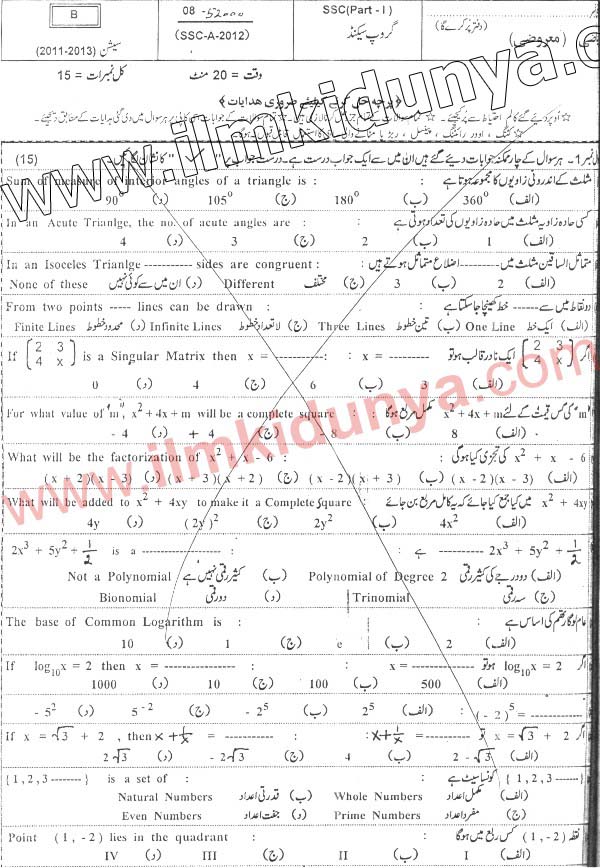 B
سیشن (2011-2013)
08 - 52000
(SSC-A-2012)
SSC(Part - I)
گروپ سیکنڈ
(معروضی)
وقت = 20 منٹ
کل نمبرات = 15
www.ilmkidunya.com
(15)
Sum of measure of interior angles of a triangle is : مثلث کے اندرونی زاویوں کا مجموعہ ہوتا ہے
(الف) 360° (ب) 180° (ج) 105° (د) 90°
In an Acute Trianlge, the no. of acute angles are : کسی حادہ زاویہ مثلث میں حادہ زاویوں کی تعداد ہوتی ہے
(الف) 1 (ب) 2 (ج) 3 (د) 4
In an Isoceles Trianlge ---------- sides are congruent : متماثل الساقین مثلث میں ---------- اضلاع متماثل ہوتے ہیں
(الف) 2 (ب) 3 (ج) مختلف Different (د) ان میں سے کوئی نہیں None of these
From two points ----- lines can be drawn : دو نقاط میں سے ------ خط کھینچا جا سکتا ہے
(الف) ایک خط One Line (ب) تین خطوط Three Lines (ج) لاتعداد خطوط Infinite Lines (د) محدود خطوط Finite Lines
If [2 3 4 x] is a Singular Matrix then x = --------- : اگر [2 3 4 x] ایک نادر قالب ہو تو x = ---------
(الف) 3 (ب) 6 (ج) 4 (د) 0
For what value of 'm', x² + 4x + m will be a complete square : 'm' کی کس قیمت کے لئے x² + 4x + m مکمل مربع ہوگا
(الف) 8 (ب) - 8 (ج) + 4 (د) - 4
What will be the factorization of x² + x - 6 : x² + x - 6 کی تجزی کیا ہوگی
(الف) (x - 2)(x - 3) (ب) (x - 2)(x + 3) (ج) (x + 3)(x + 2) (د) (x + 2)(x - 3)
What will be added to x² + 4xy to make it a Complete Square : x² + 4xy میں کیا جمع کیا جائے کہ یہ کامل مربع بن جائے
(الف) 4x² (ب) 2y² (ج) (2y)² (د) 4y
2x³ + 5y² + 1/2 is a -------------- : 2x³ + 5y² + 1/2 ---------- ہے
(الف) دو درجے کی کثیر رقمی Polynomial of Degree 2 (ب) کثیر رقمی نہیں ہے Not a Polynomial
(ج) سہ رقمی Trinomial (د) دو رقمی Bionomial
The base of Common Logarithm is : عام لوگارتھم کی اساس ہے
(الف) 2 (ب) e (ج) 1 (د) 10
If log₁₀x = 2 then x = -------------- : اگر log₁₀x = 2 ہو تو x = --------------
(الف) 500 (ب) 100 (ج) 10 (د) 1000
(- 2)⁵ = ----------
(الف) 2⁵ (ب) - 2⁵ (ج) 5⁻² (د) - 5²
If x = √3 + 2 , then x + 1/x = ---------- : اگر x = √3 + 2 تو x + 1/x = ----------
(الف) 2 - √3 (ب) 4 (ج) - 2√3 (د) 2√3
{1, 2, 3 -------} is a set of : {1, 2, 3 -----} کونسا سیٹ ہے
(الف) مکمل اعداد Whole Numbers (ب) قدرتی اعداد Natural Numbers
(ج) مفرد اعداد Prime Numbers (د) جفت اعداد Even Numbers
Point (1, -2) lies in the quadrant : نقطہ (1, -2) کس ربع میں ہوگا
(الف) I (ب) II (ج) III (د) IV